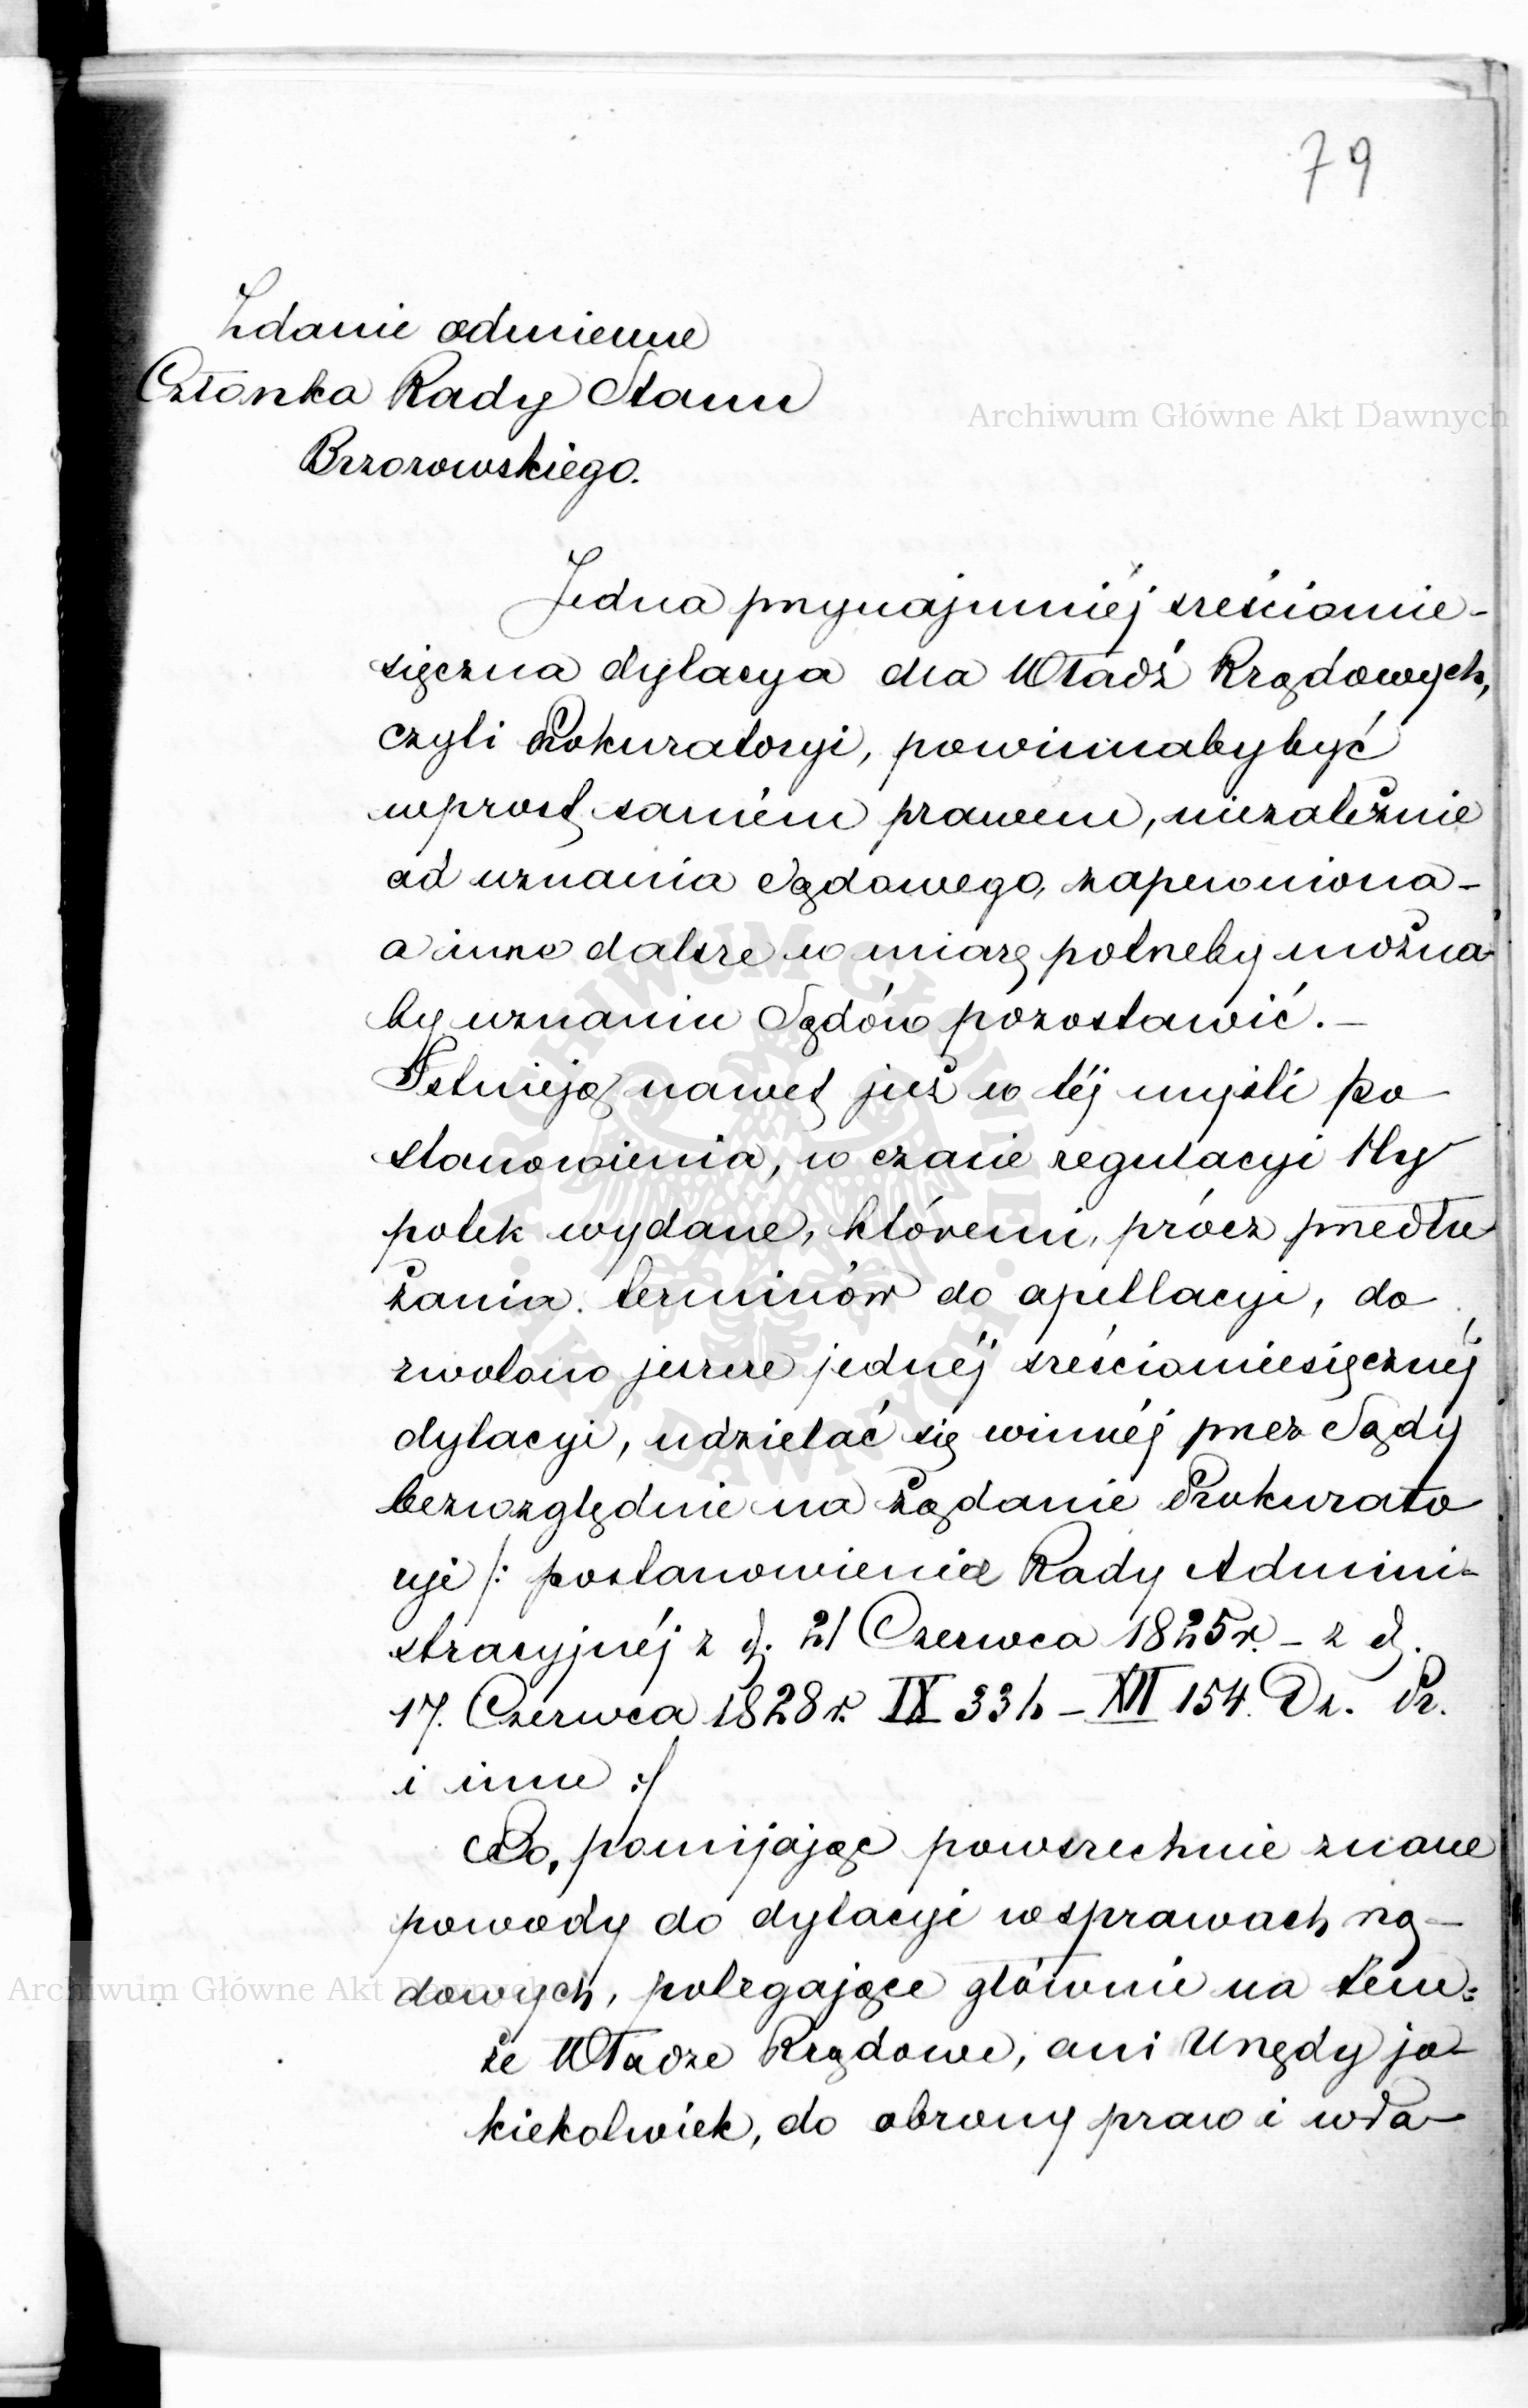 79
Zdanie odmienne
Członka Rady Stanu
Brzozowskiego.
Archiwum Główne Akt Dawnych
Jedna przynajmniéj sześciomie-
sięczna dylacya dla Władz Rządowych,
czyli Prokuratoryi, powinnaby być
wprost samém prawem, niezależnie
od uznania Sądowego, zapewniona –
a inne dalsze w miarę potrzeby można
by uznaniu Sądów pozostawić. –
Istnieją nawet już w téj myśli po
stanowienia, w czasie regulacyi Hy
potek wydane, któremi, prócz przedłu
żania terminów do apellacyi, do
zwolono jeszcze jednéj sześciomiesięcznéj
dylacyi, udzielać się winnéj przez Sądy
bezwzględnie na żądanie Prokurato
ryi /: postanowienia Rady Admini-
stracyjnéj z d. 21 Czerwca 1825 r. – z d.
17. Czerwca 1828 r. IX 331 – XII 154. Dz. Pr.
i inne :/
Bo, pomijając powszechnie znane
powody do dylacyi w sprawach rzą-
dowych, polegające głównie na tem:
że Władze Rządowe, ani Urzędy ja-
kiekolwiek, do obrony praw i wła-
Archiwum Główne Akt Dawnych
ARCHIWUM GŁÓWNE · AKT DAWNYCH ·